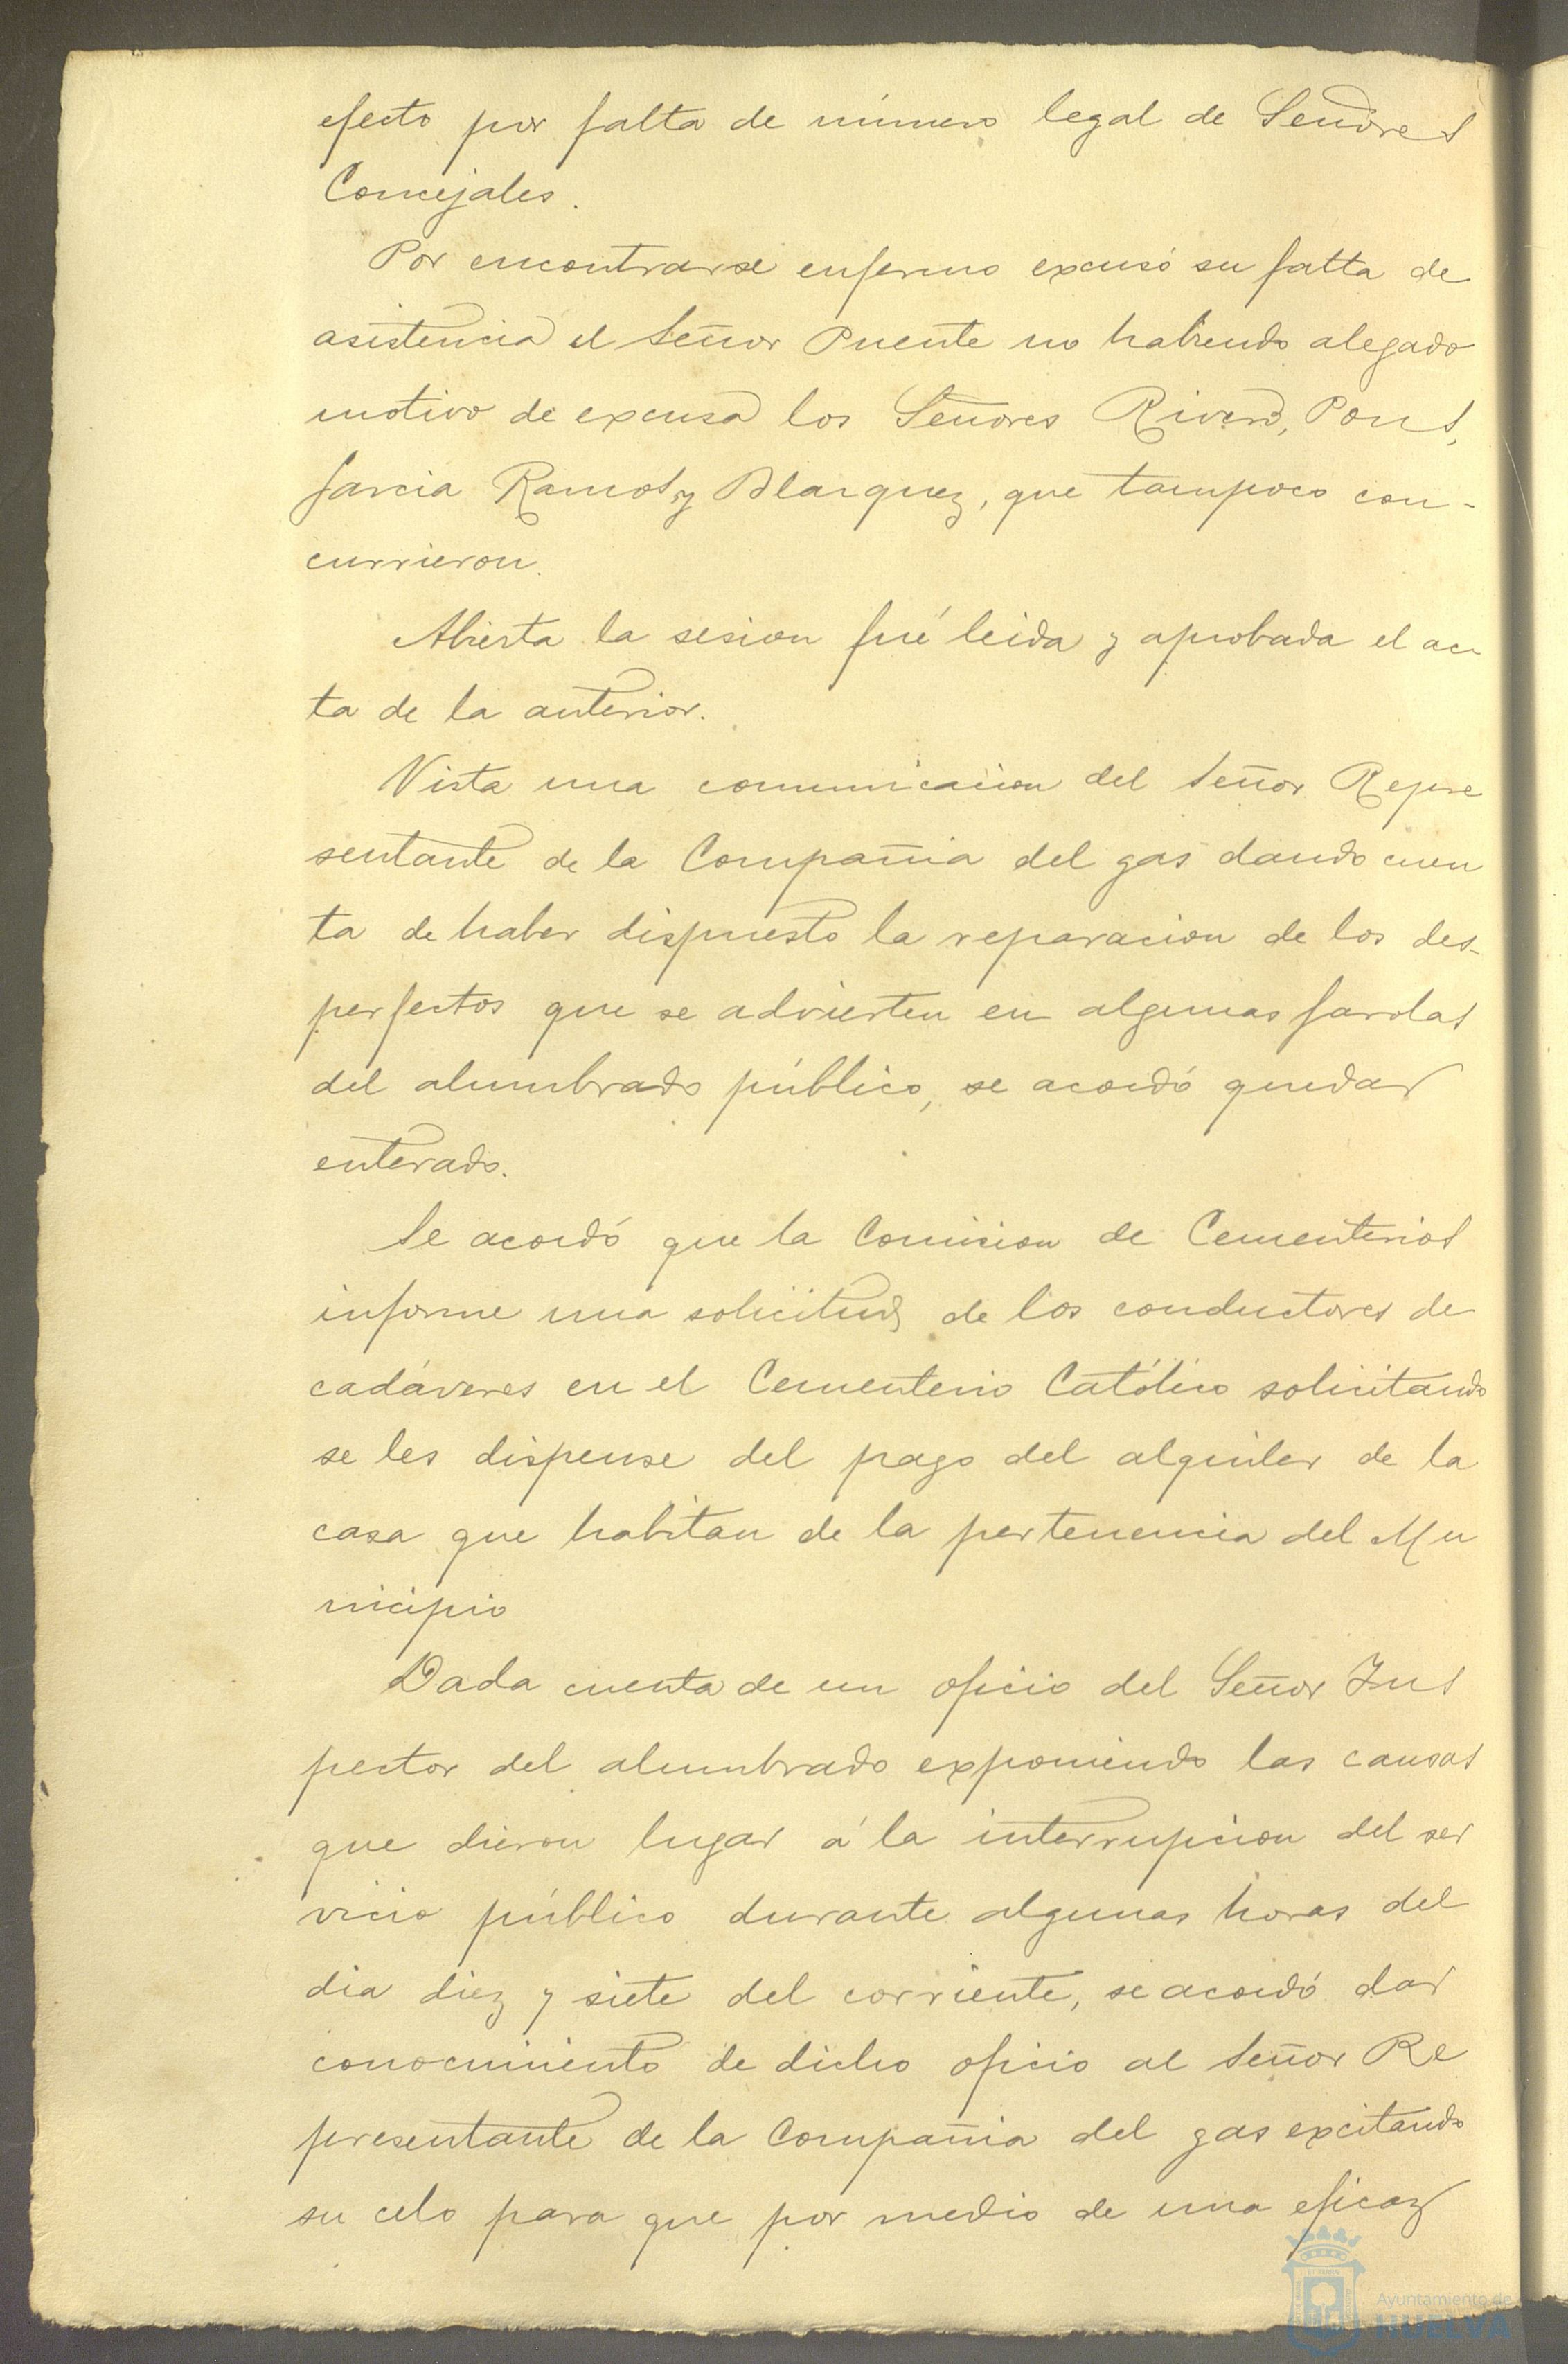 efecto por falta de número legal de Señores
Concejales.
Por encontrarse enfermo excusó su falta de
asistencia el Señor Puente no habiendo alegado
motivo de excusa los Señores Rivero, Pons,
Garcia Ramos y Blazquez, que tampoco con-
currieron.
Abierta la sesion fué leida y aprobada el ac
ta de la anterior.
Vista una comunicacion del Señor Repre
sentante de la Compañia del gas dando cuen
ta de haber dispuesto la reparacion de los des-
perfectos que se advierten en algunas farolas
del alumbrado público, se acordó quedar
enterado.
Se acordó que la Comision de Cementerios
informe una solicitud de los conductores de
cadáveres en el Cementerio Católico solicitando
se les dispense del pago del alquiler de la
casa que habitan de la pertenencia del Mu
nicipio
Dada cuenta de un oficio del Señor Ins
pector del alumbrado exponiendo las causas
que dieron lugar á la interrupcion del ser
vicio público durante algunas horas del
dia diez y siete del corriente, se acordó dar
conocimiento de dicho oficio al Señor Re
presentante de la Compañia del gas excitando
su celo para que por medio de una eficaz
Ayuntamiento de
HUELVA